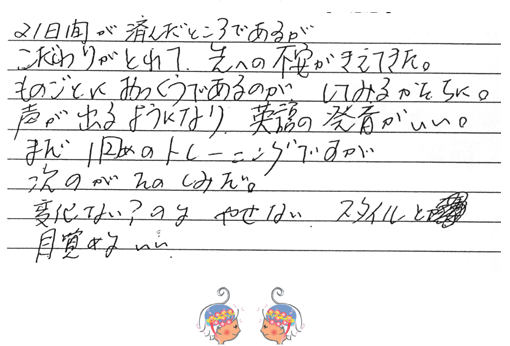 21日間が済んだところであるが
こだわりがとれて、先への不安がきえてきた。
ものごとに おっくうであるのが してみるかたちに。
声が出るようになり、英語の発音がいい。
まだ 1回めのトレーニングですが
次のが たのしみだ。
変化ない?のは やせない スタイルと
目覚めは いい…